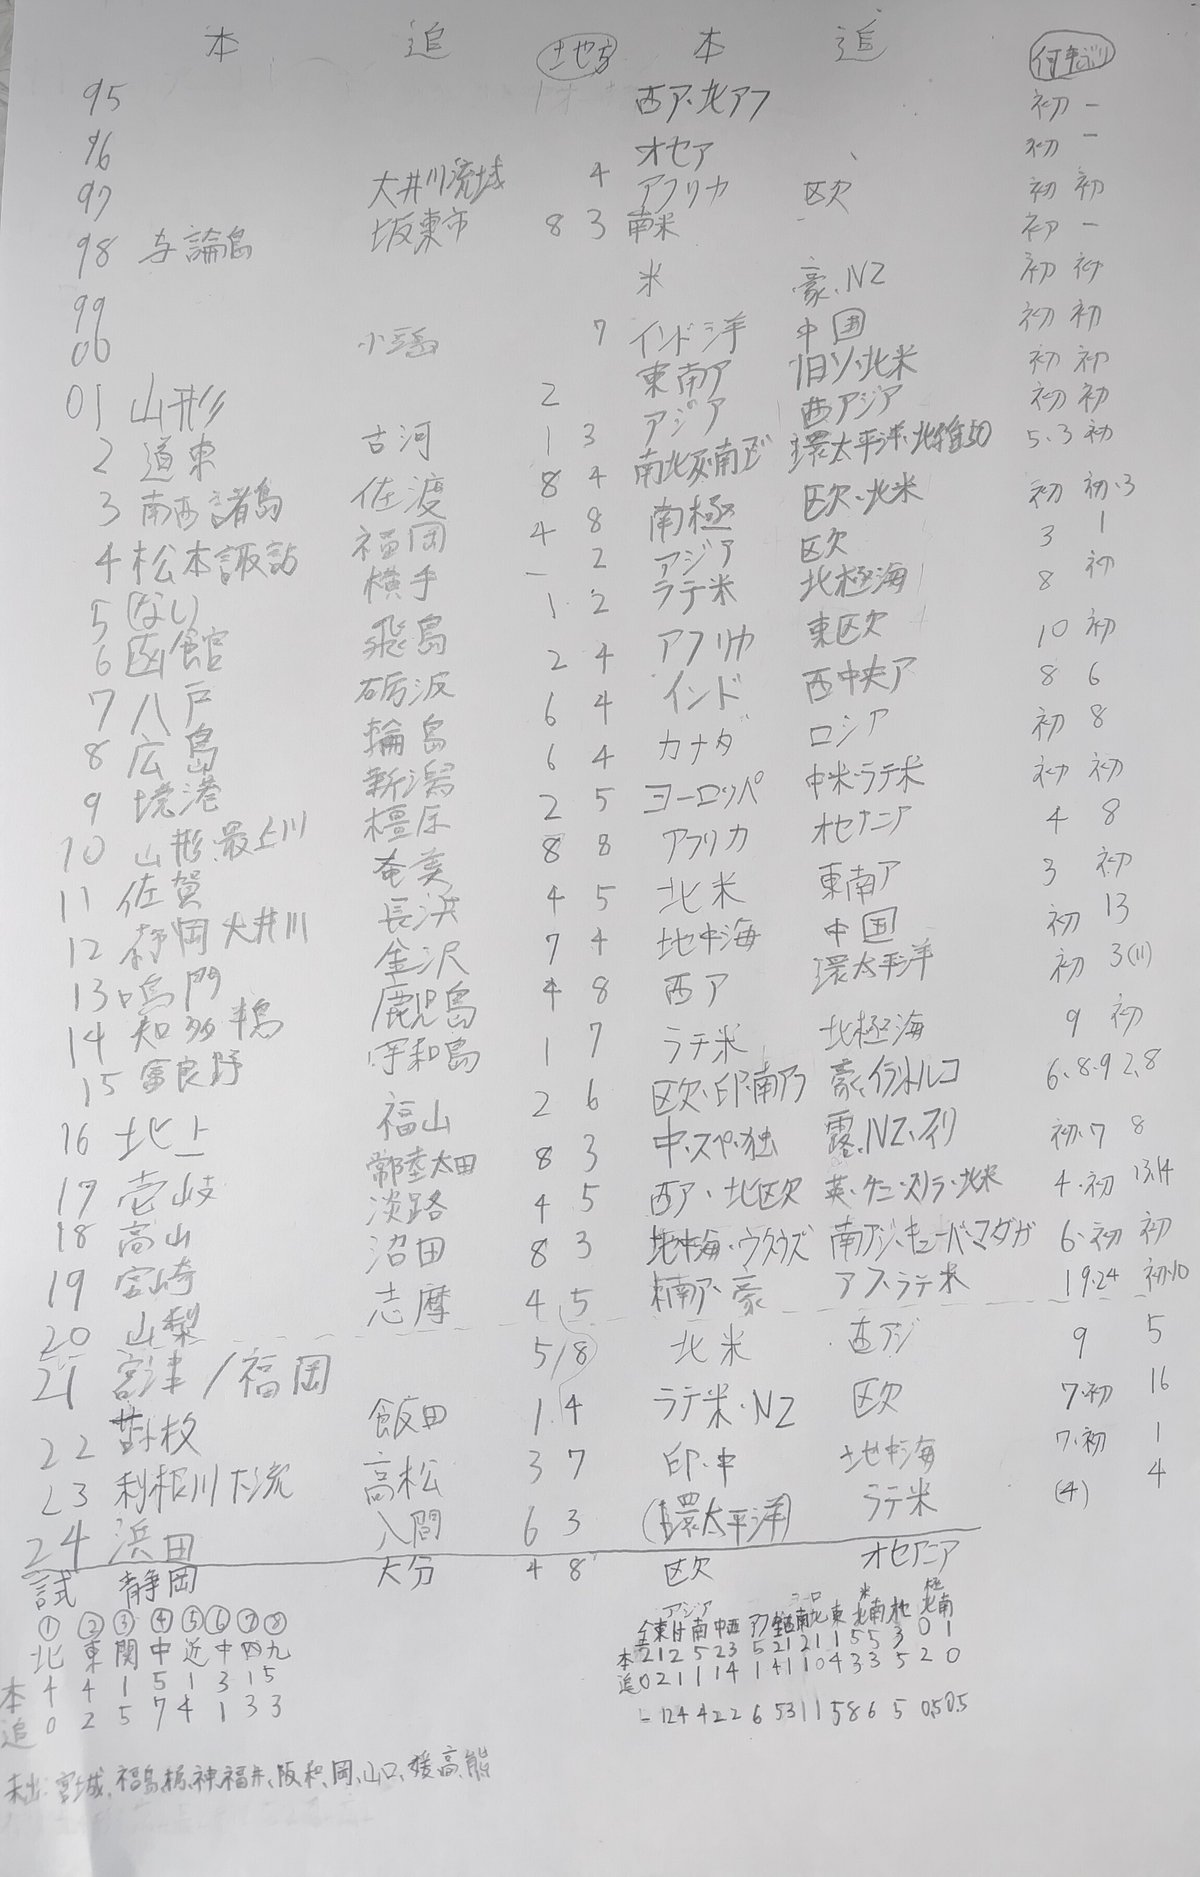 本 追 土地方 本 追 何年ぶり
95 西ア・北アフ 初 -
96 オセア 初 -
97 大井川流域 4 アフリカ 欧 初 初
98 与論島 坂東市 8 3 南米 初 -
99 米 豪、NZ 初 初
00 小豆島 7 インド洋 中国 初 初
01 山形 2 東南ア 旧ソ・北米 初 初
2 道東 古河 1 3 アジア 西アジア 初 初
3 南西諸島 佐渡 8 4 環太平洋・北緯50 5・3 初
4 松本諏訪 福岡 4 8 南極 欧・北米 初 初・3
5 (なし) 横手 - 2 アジア 欧 3 1
6 函館 飛島 1 2 ラテ米 北極海 8 初
7 八戸 砺波 2 4 アフリカ 東欧 10 初
8 広島 輪島 6 4 インド 西中央ア 8 6
9 境港 新潟 6 4 カナダ ロシア 初 8
10 山形、最上川 橿原 2 5 ヨーロッパ 中米・ラテ米 初 初
11 佐賀 奄美 8 8 アフリカ オセアニア 4 8
12 静岡 大井川 長浜 4 5 北米 東南ア 3 初
13 鳴門 金沢 7 4 地中海 中国 初 13
14 知多半島 鹿児島 4 8 西ア 環太平洋 初 3(11)
15 富良野 宇和島 1 7 ラテ米 北極海 9 初
16 北上 福山 2 6 欧・印・南アフ 豪、イラン、トルコ 6・8・9 2、8
17 壱岐 常陸太田 8 3 中・スペ・独 露、NZ、フィリ 初・7 8
18 高山 淡路 4 5 西ア・北欧 英・ケニ・スリラ・北米 4・初 13、14
19 宮崎 沼田 8 3 地中海・ウクウズ 南アジ・キューバ・マダガ 6・初 初
20 山梨 志摩 4 5 東南ア・豪 アフ・ラテ米 19・24 初・10
21 宮津/福岡 5/8 北米 西アジ 9 5
22 飯田 1 4 ラテ米・NZ 欧 7・初 16
23 利根川下流 高松 3 7 印・中 地中海 7・初 1
24 浜田 入間 6 3 (環太平洋) ラテ米 (4) 4
試 静岡 大分 4 8 欧 オセアニア
① ② ③ ④ ⑤ ⑥ ⑦ ⑧
北 東 関 中 近 中 四 九
本 4 4 1 5 1 3 1 5
追 0 2 5 7 4 1 3 3
未出:宮城、福島、栃、神、福井、阪、和、岡、山口、媛、高、熊